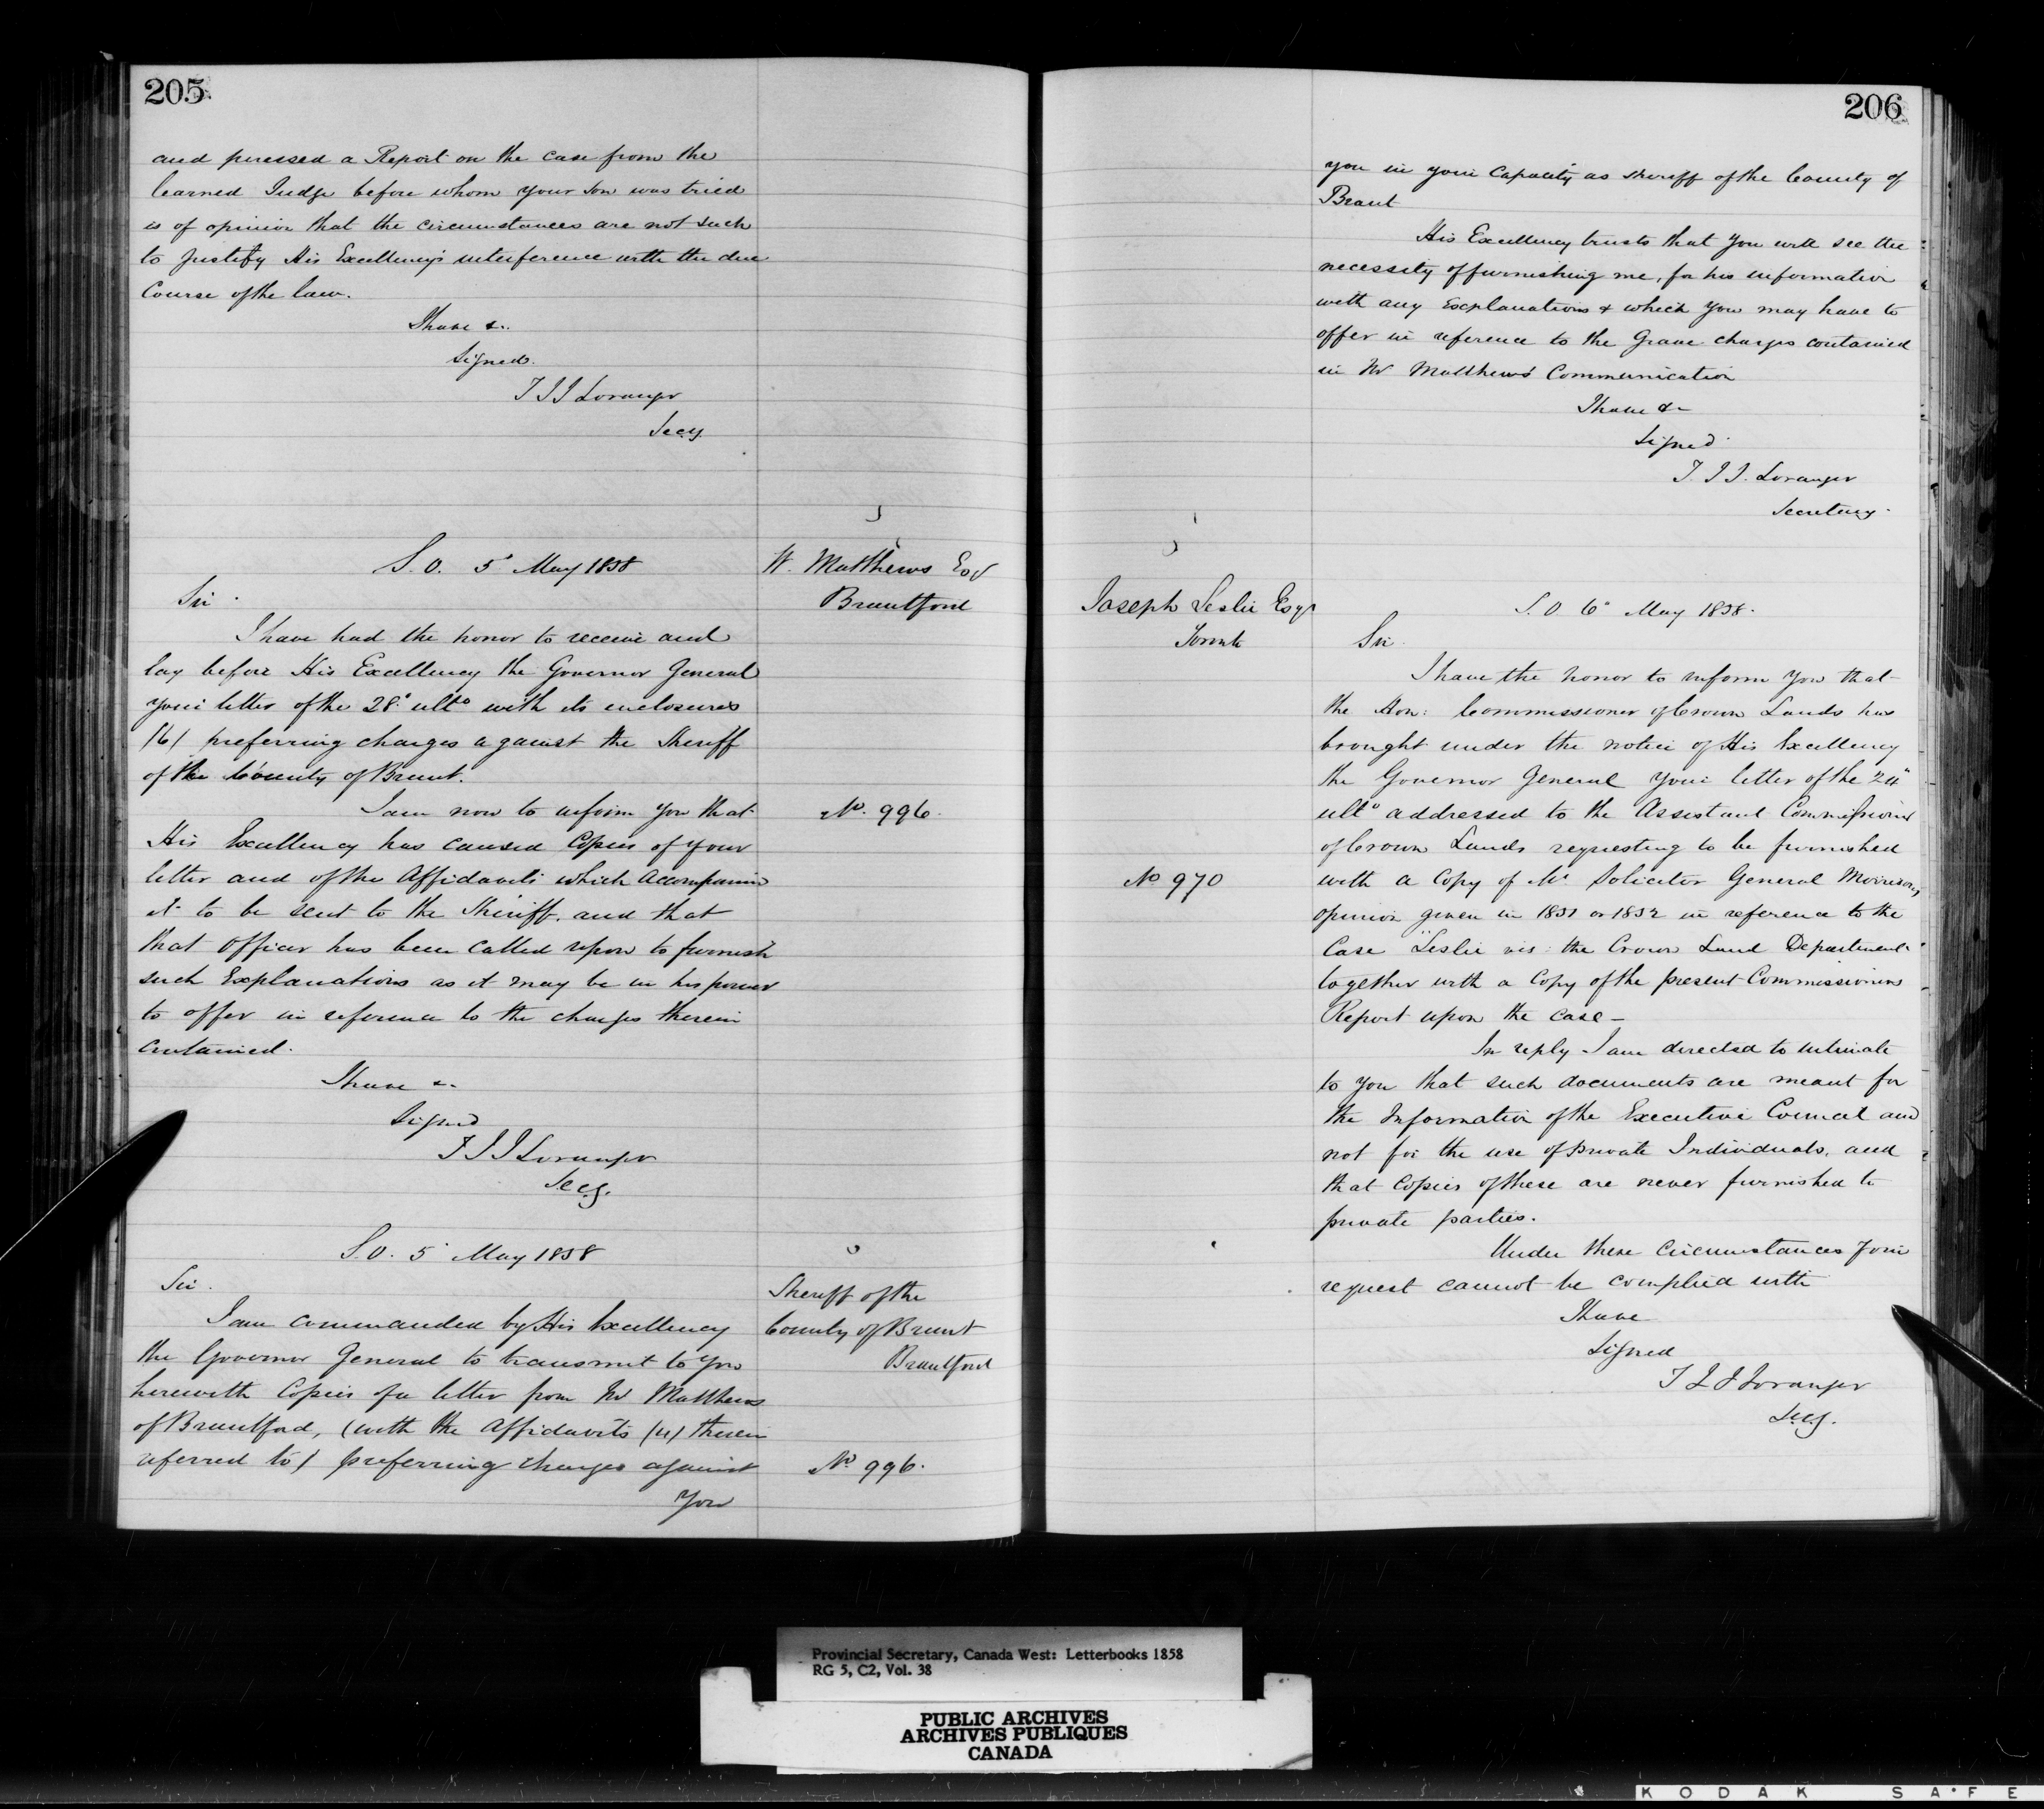 205
and perused a Report on the case from the
learned Judge before whom your son was tried
is of opinion that the circumstances are not such
to justify His Excellency's interference with the due
Course of the law.
I have &c.
Signed.
T J J Loranger
Secy.
S. O. 5' May 1858
W. Matthews Esq
Brantford
Sir.
I have had the honor to receive and
lay before His Excellency the Governor General
your letter of the 28' ulto with its enclosures
/6/ preferring charges against the Sheriff
of the County of Brant.
I am now to inform you that
No. 996.
His Excellency has caused Copies of your
letter and of the Affidavits which accompanied
it to be sent to the Sheriff. and that
that Officer has been called upon to furnish
such Explanations as it may be in his power
to offer in reference to the charges therein
contained.
I have &c.
Signed
T J J Loranger
Secy.
S.O. 5' May 1858
Sheriff of the
County of Brant
Brantford
Sir.
I am commanded by His Excellency
the Governor General to transmit to you
herewith Copies of a letter from Mr Matthews
of Brantford, (with the Affidavits /4/ therein
referred to) preferring charges against
No. 996.
You
206
you in your Capacity as Sheriff of the County of
Brant
His Excellency trusts that you will see the
necessity of furnishing me, for his information
with any Explanations & which you may have to
offer in reference to the Grave charges contained
in Mr Matthews' Communication
I have &c
Signed
T. J. J. Loranger
Secretary.
Joseph Leslie Esqr
Toronto
S. O. 6' May 1858.
Sir.
I have the honor to inform you that
the Hon: Commissioner of Crown Lands has
brought under the notice of His Excellency
the Governor General your letter of the 24"
ulto addressed to the Assistant Commissioner
of Crown Lands requesting to be furnished
No 970
with a Copy of Mr Solicitor General Morrison's
opinion given in 1851 or 1852 in reference to the
Case "Leslie vis: the Crown Land Department"
together with a Copy of the present Commissioners
Report upon the case -
In reply I am directed to intimate
to you that such documents are meant for
the Information of the Executive Council and
not for the use of private Individuals, and
that Copies of these are never furnished to
private parties.
Under these circumstances your
request cannot be complied with
I have
Signed
T J J Loranger
Secy.
Provincial Secretary, Canada West: Letterbooks 1858
RG 5, C2, Vol. 38
PUBLIC ARCHIVES
ARCHIVES PUBLIQUES
CANADA
KODAK SAFE